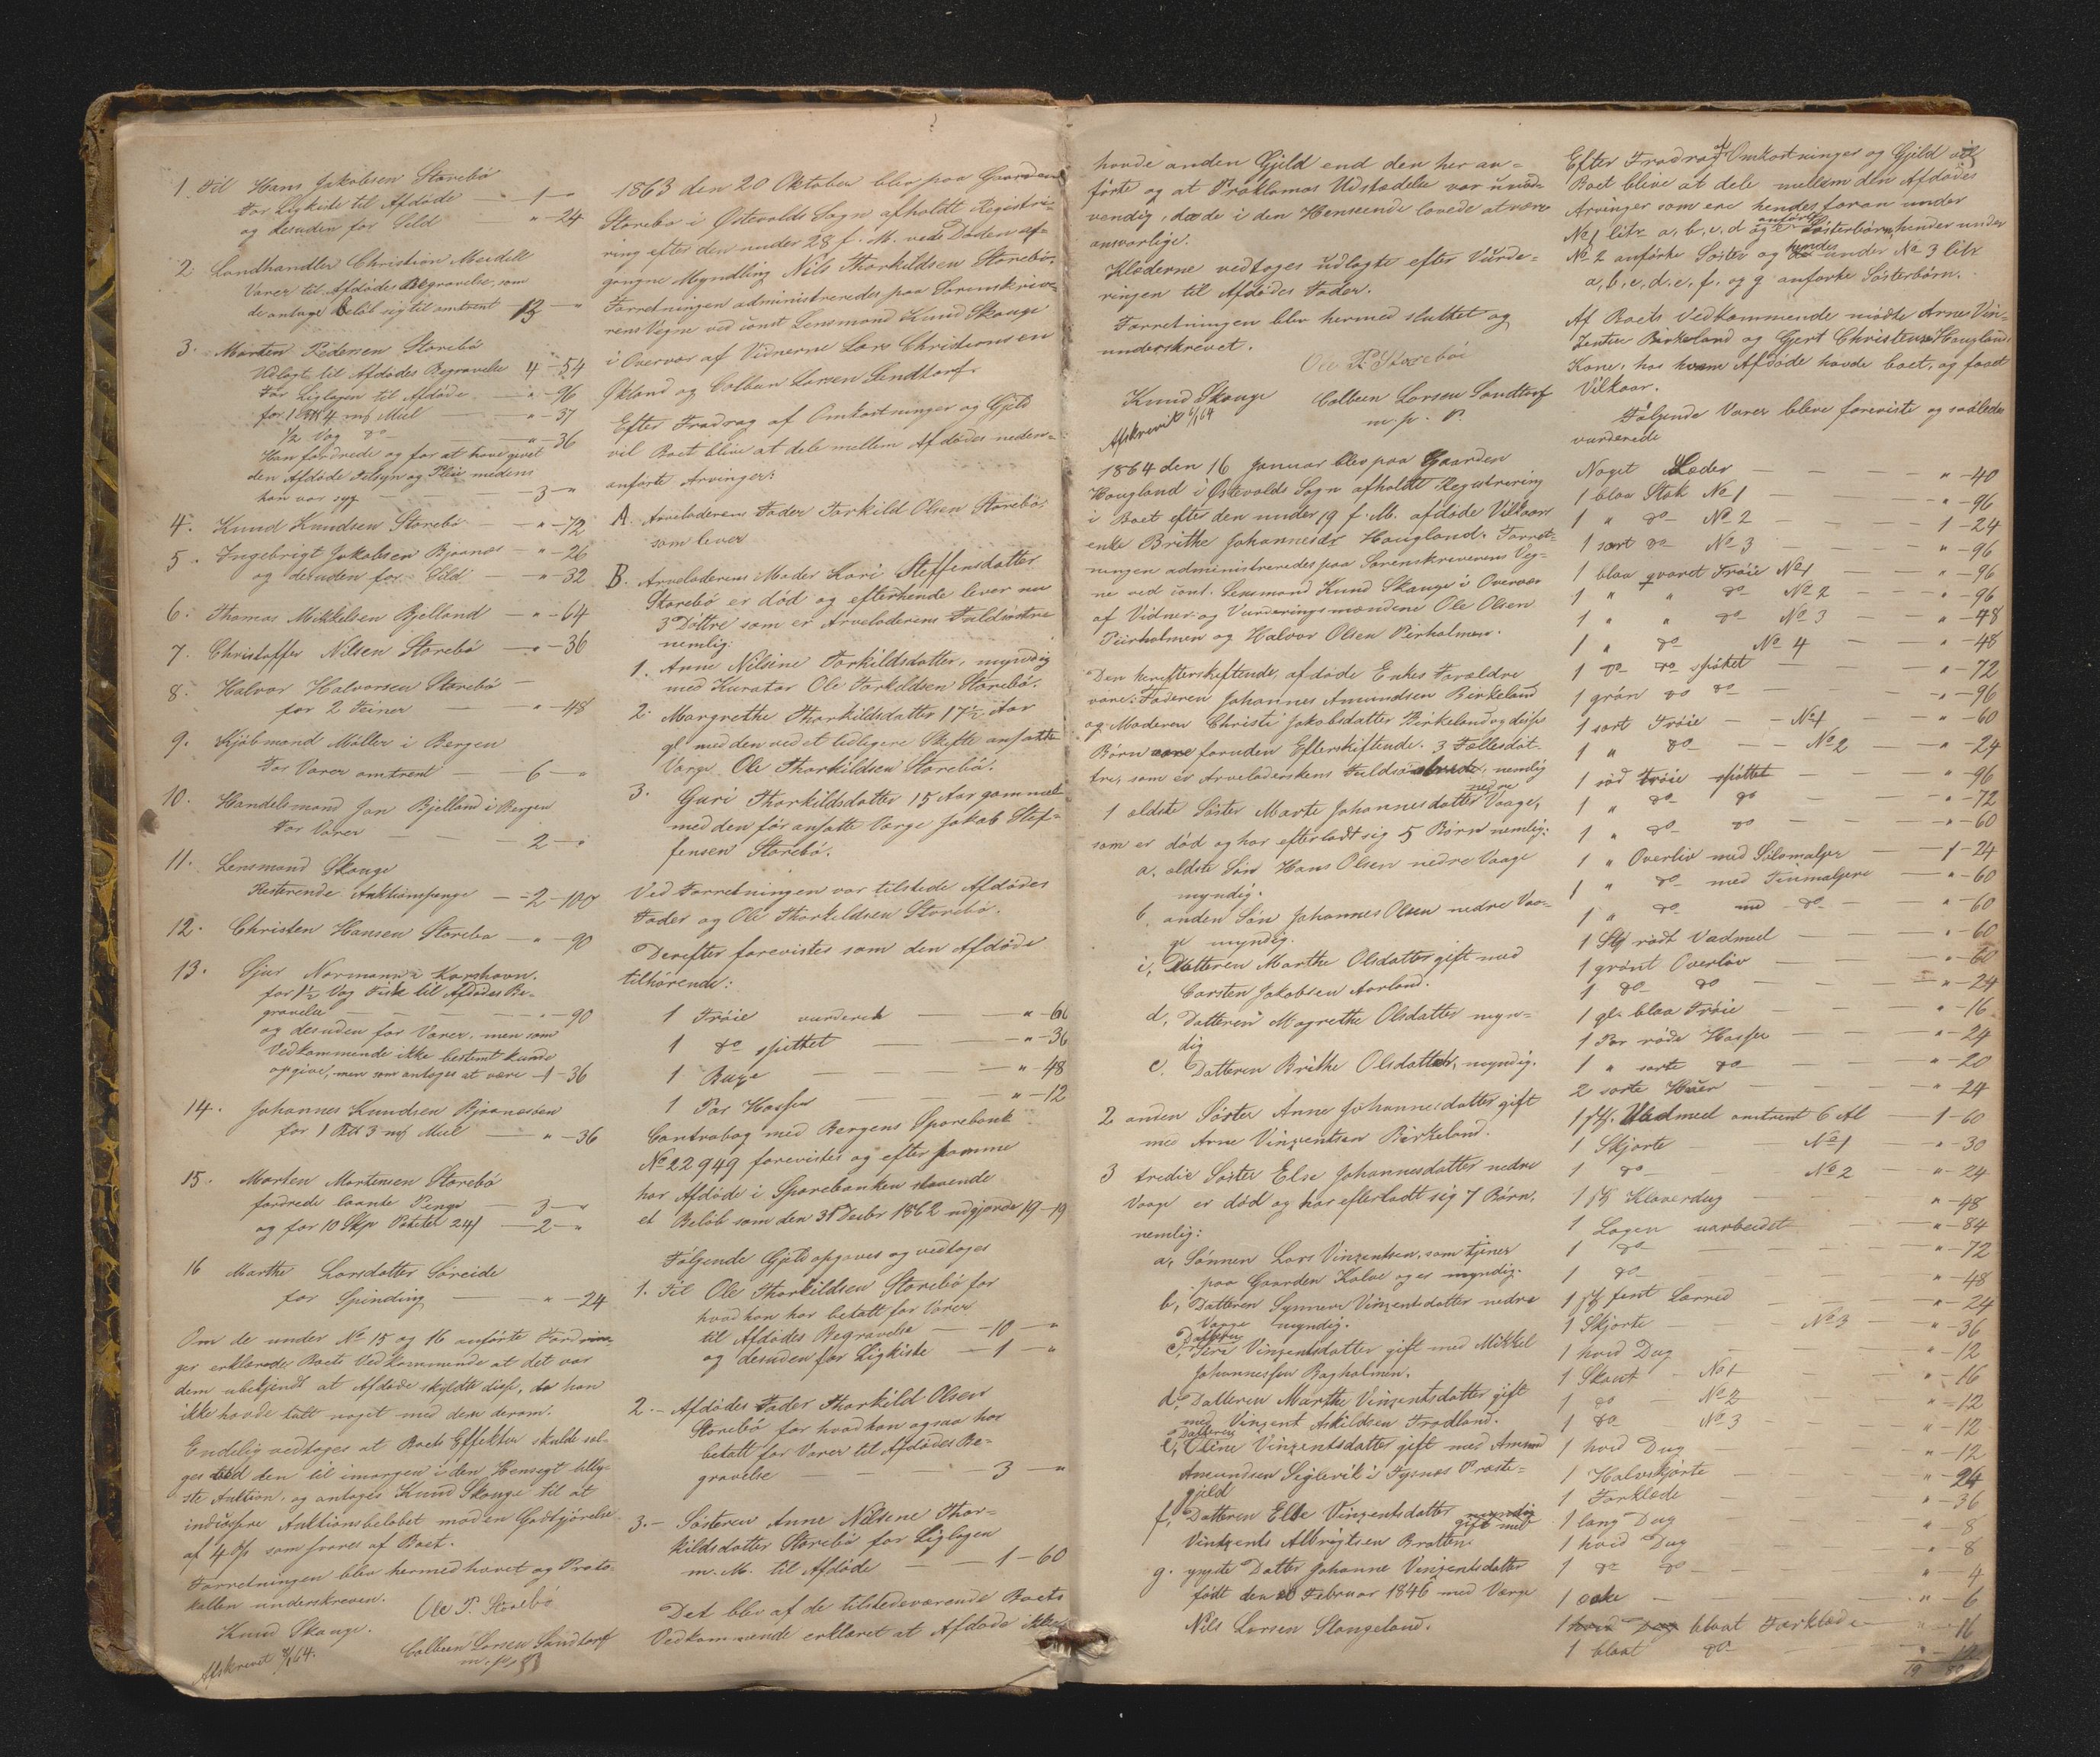 1. Til Hans Jakobsen Storebø
for Ligkiste til Afdøde — 1 — "
og desuden for Sild — " — 24
2. Landhandler Christian Meidell
Varer til Afdødes Begravelse, som
de antage beløb sig til omtrent 13 — "
3. Morten Pedersen Storebø
Udlagt til Afdødes Begravelse 4 — 54
For Liglagen til Afdøde — " — 96
for 1 4 mk Miel — " — 37
1/2 Vog do — " — 36
Han fordrede og for at have givet
den Afdøde Tilsyn og Pleie medens
han var syg — 3 — "
4. Knud Knudsen Storebø — " — 72
5. Ingebrigt Jakobsen Bjoanæs — " — 26
og desuden for Sild — " — 32
6. Thomas Mikkelsen Bjelland — " — 64
7. Christoffer Nilsen Storebø — " — 36
8. Halvor Halvorsen Storebø —
for 2 Teiner — " — 48
9. Kjøbmand Møller i Bergen
For Varer omtrent — 6 — "
10. Handelsmand Jan Bjelland i Bergen
For Varer — 2 — "
11. Lensmand Skauge
Resterende Auktionspenge — 2 — 100
12. Christen Hansen Storebø — " — 90
13. Sjur Normann i Korshavn.
for 1 1/2 Vog Fisk til Afdødes Be-
gravelse — " — 90
og desuden for Varer, men som
Vedkommende ikke bestemt kunde
opgive, men som antages at være — 1 — 36
14. Johannes Knudsen Bjoanæsøen
for 1 3 mk Miel — " — 36
15. Morten Mortensen Storebø
fordrede laante Penge — 3 — "
og for 10 Skp Potetes 24 — 2 — "
16 Marthe Larsdatter Søreide
for Spinding — " — 24
Om de under No 15 og 16 anførte Fordrin-
ger erklærede Boets Vedkommende at det var
dem ubekjendt at Afdøde skyldte disse, da han
ikke havde talt noget med dem derom.
Endelig vedtoges at Boets Effekter skulde sæl-
ges ved den til imorgen i den Hensigt tilly-
ste Auktion, og antoges Knud Skauge til at
indkassere Auktionsbeløbet mod en Godtgjørelse
af 4 % som svares af Boet.
Forretningen blev hermed hævet og Proto-
kollen underskreven.
Ole T. Storebø
Knud Skauge.
Colbein Larsen Sandtorf
m. p. P
Afskrevet /64.
1863 den 20 Oktober blev paa Gaarden
Storebø i Østevolds Sogn afholdt Registre-
ring efter den under 28 f. M. ved Døden af-
gangne Myndling Nils Thorkildsen Storebø.
Forretningen administreredes paa Sorenskrive-
rens Vegne ved const. Lensmand Knud Skauge
i Overvær af Vidnerne Lars Christensen
Økland og Colban Larsen Sandtorf.
Efter Fradrag af Omkostninger og Gjeld
vil Boet blive at dele mellem Afdødes neden-
anførte Arvinger:
A. Arveladerens Fader Torkild Olsen Storebø,
som lever
B. Arveladerens Moder Kari Steffensdatter
Storebø er død og efter hende lever nu
3 Døttre som er Arveladerens Fuldsøstre
nemlig:
1. Anne Nilsine Torkildsdatter, myndig
med Kurator Ole Torkildsen Storebø.
2. Margrethe Thorkildsdatter 17 1/2 Aar
gl. med den ved et tidligere Skifte ansatte
Verge Ole Thorkildsen Storebø.
3. Guri Thorkildsdatter 15 Aar gammel
med den før ansatte Verge Jakob Stef-
fensen Storebø.
Ved Forretningen var tilstede Afdødes
Fader og Ole Thorkildsen Storebø.
Derefter forevistes som den Afdøde
tilhørende:
1 Trøie vurderet — " — 60
1 do spittet — " — 36
1 Buxe — " — 48
1 Par Hosser — " — 12
Contrabog med Bergens Sparebank
No 22949 forevistes og efter samme
har Afdøde i Sparebanken staaende
et Beløb som den 31 Decbr 1862 udgjorde 19 — 19
Følgende Gjeld opgaves og vedtoges
1. Til Ole Thorkildsen Storebø for
hvad han har betalt for Varer
til Afdødes Begravelse — 10 — "
og desuden for Ligkiste — 1 — "
2. — Afdødes Fader Thorkild Olsen
Storebø for hvad han ogsaa har
betalt for Varer til Afdødes Be-
gravelse — 3 — "
3. — Søsteren Anne Nilsine Thor-
kildsdatter Storebø for Liglagen
m. M. til Afdøde — 1 — 60
Det blev af de tilstedeværende Boets
Vedkommende erklæret at Afdøde ikke
havde anden Gjeld end den her an-
førte og at Proklamas Udstædelse var unød-
vendig, da de i den Henseende lovede at være
ansvarlige.
Klæderne vedtoges udlagte efter Vurde-
ringen til Afdødes Fader.
Forretningen blev hermed sluttet og
underskrevet.
Ole T. Storebø
Knud Skauge Colbein Larsen Sandtorf
m. p. P.
Afskrevet /64
1864 den 16 Januar blev paa Gaarden
Hougland i Østevolds Sogn afholdt Registrering
i Boet efter den under 19 f. M. afdøde Vilkaars
enke Brithe Johannesdr Hougland. Forret-
ningen administreredes paa Sorenskriverens Veg-
ne ved const. Lensmand Knud Skauge i Overvær
af Vidner og Vurderingsmændene Ole Olsen
Peirholmen og Halvor Olsen Peirholmen.
Den herefterskiftende, afdøde Enkes Forældre
vare: Faderen Johannes Amundsen Birkeland
og Moderen Christi Jakobsdatter Birkeland og disses
Børn vare foruden Efterskiftende. 3 Fællesdøt-
tre, som er Arveladerskens Fuldsøstre, nemlig
1 ældste Søster Marte Johannesdatter nedre Vaage,
som er død og har efterladt sig 5 Børn nemlig:
a. ældste Søn Hans Olsen nedre Vaage
myndig.
b anden Søn Johannes Olsen nedre Vaa-
ge myndig.
c, Datteren Marthe Olsdatter gift med
Carsten Jakobsen Aarland.
d, Datteren Magrethe Olsdatter myn-
dig
e. Datteren Brithe Olsdatter, myndig.
2 anden Søster Anne Johannesdatter gift
med Arne Vinzentsen Birkeland.
3 tredie Søster Else Johannesdatter nedre
Vaage er død og har efterladt sig 7 Børn.
nemlig:
a, Sønnen Lars Vinzentsen, som tjener
paa Gaarden Kalve og er myndig.
b, Datteren Synneve Vinzentsdatter nedre
Vaage myndig.
c, Datteren Siri Vinzentsdatter gift med Mikkel
Johannessen Bagholmen.
d. Datteren Marthe Vinzentsdatter gift
med Vinzent Askildsen Trodland.
e, Datteren Oline Vinzentsdatter gift med Amund
Amundsen Siglevik i Tysnæs Præste-
gjeld
f, Datteren Else Vinzentsdatter myndig gift med
Vintzents Albrigtsen Bratten.
g. yngste Datter Johanne Vinzentsdatter
født den 20 Februar 1846 med Verge
Nils Larsen Stangeland.
Efter Fradrag af Omkostninger og Gjeld vil
Boet blive at dele mellem den Afdødes
Arvinger som ere hendes foran under
No 1 litr a, b, c, d og e anførte Søsterbørn, hendes under
No 2 anførte Søster og hendes under No 3 litr
a, b, c, d, e, f, og g anførte Søsterbørn.
Af Boets Vedkommende mødte Arne Vin-
zentsen Birkeland og Gjert Christensen Houglands
Kone, hos hvem Afdøde havde boet, og faaet
Vilkaar.
Følgende Varer bleve foreviste og saaledes
vurderede
Noget Læder — " — 40
1 blaa Stak No 1 — " — 96
1 " do No 2 — 1 — 24
1 sort do No 3 — " — 96
1 blaa qvaret Trøie No 1 — " — 96
1 " " do No 2 — " — 96
1 " " do No 3 — " — 48
1 " do No 4 — " — 48
1 do do spøtet — " — 72
1 grøn do do — " — 96
1 sort Trøie — No 1 — " — 60
1 " do — No 2 — " — 24
1 rød Trøie spøttet — " — 96
1 " do do — " — 72
1 " do do — " — 60
1 " Overliv med Sølvmaljer — 1 — 24
1 " do med Tinmaljer — " — 60
1 " do med do — " — 60
1 Stk rødt Vadmel — " — 60
1 grønt Overliv — " — 60
1 do do — " — 24
1 gl. blaa Trøie — " — 16
1 Par røde Hosser — " — 24
1 " sorte do — " — 20
2 sorte Huer — " — 24
1 Stk. Vadmel omtrent 6 Al — 1 — 60
1 Skjorte — No 1 — " — 30
1 do — No 2 — " — 24
1 Stk Klæverdug — " — 48
1 Lagen uarbeidet — " — 84
1 do — " — 72
1 do — " — 48
1 Stk fint Lærred — " — 24
1 Skjorte — No 3 — " — 36
1 hvid Dug — " — 12
1 Skaut — No 1 — " — 16
1 do — No 2 — " — 12
1 do No 3 — " — 12
1 hvid Dug — " — 12
1 Halvskjorte — " — 24
1 Forklæde — " — 36
1 lang Dug — " — 8
1 hvid Dug — " — 8
1 do do — " — 4
1 — " — 6
1 hvid Dug blaat Forklæde — " — 16
1 blaat do — " — 12